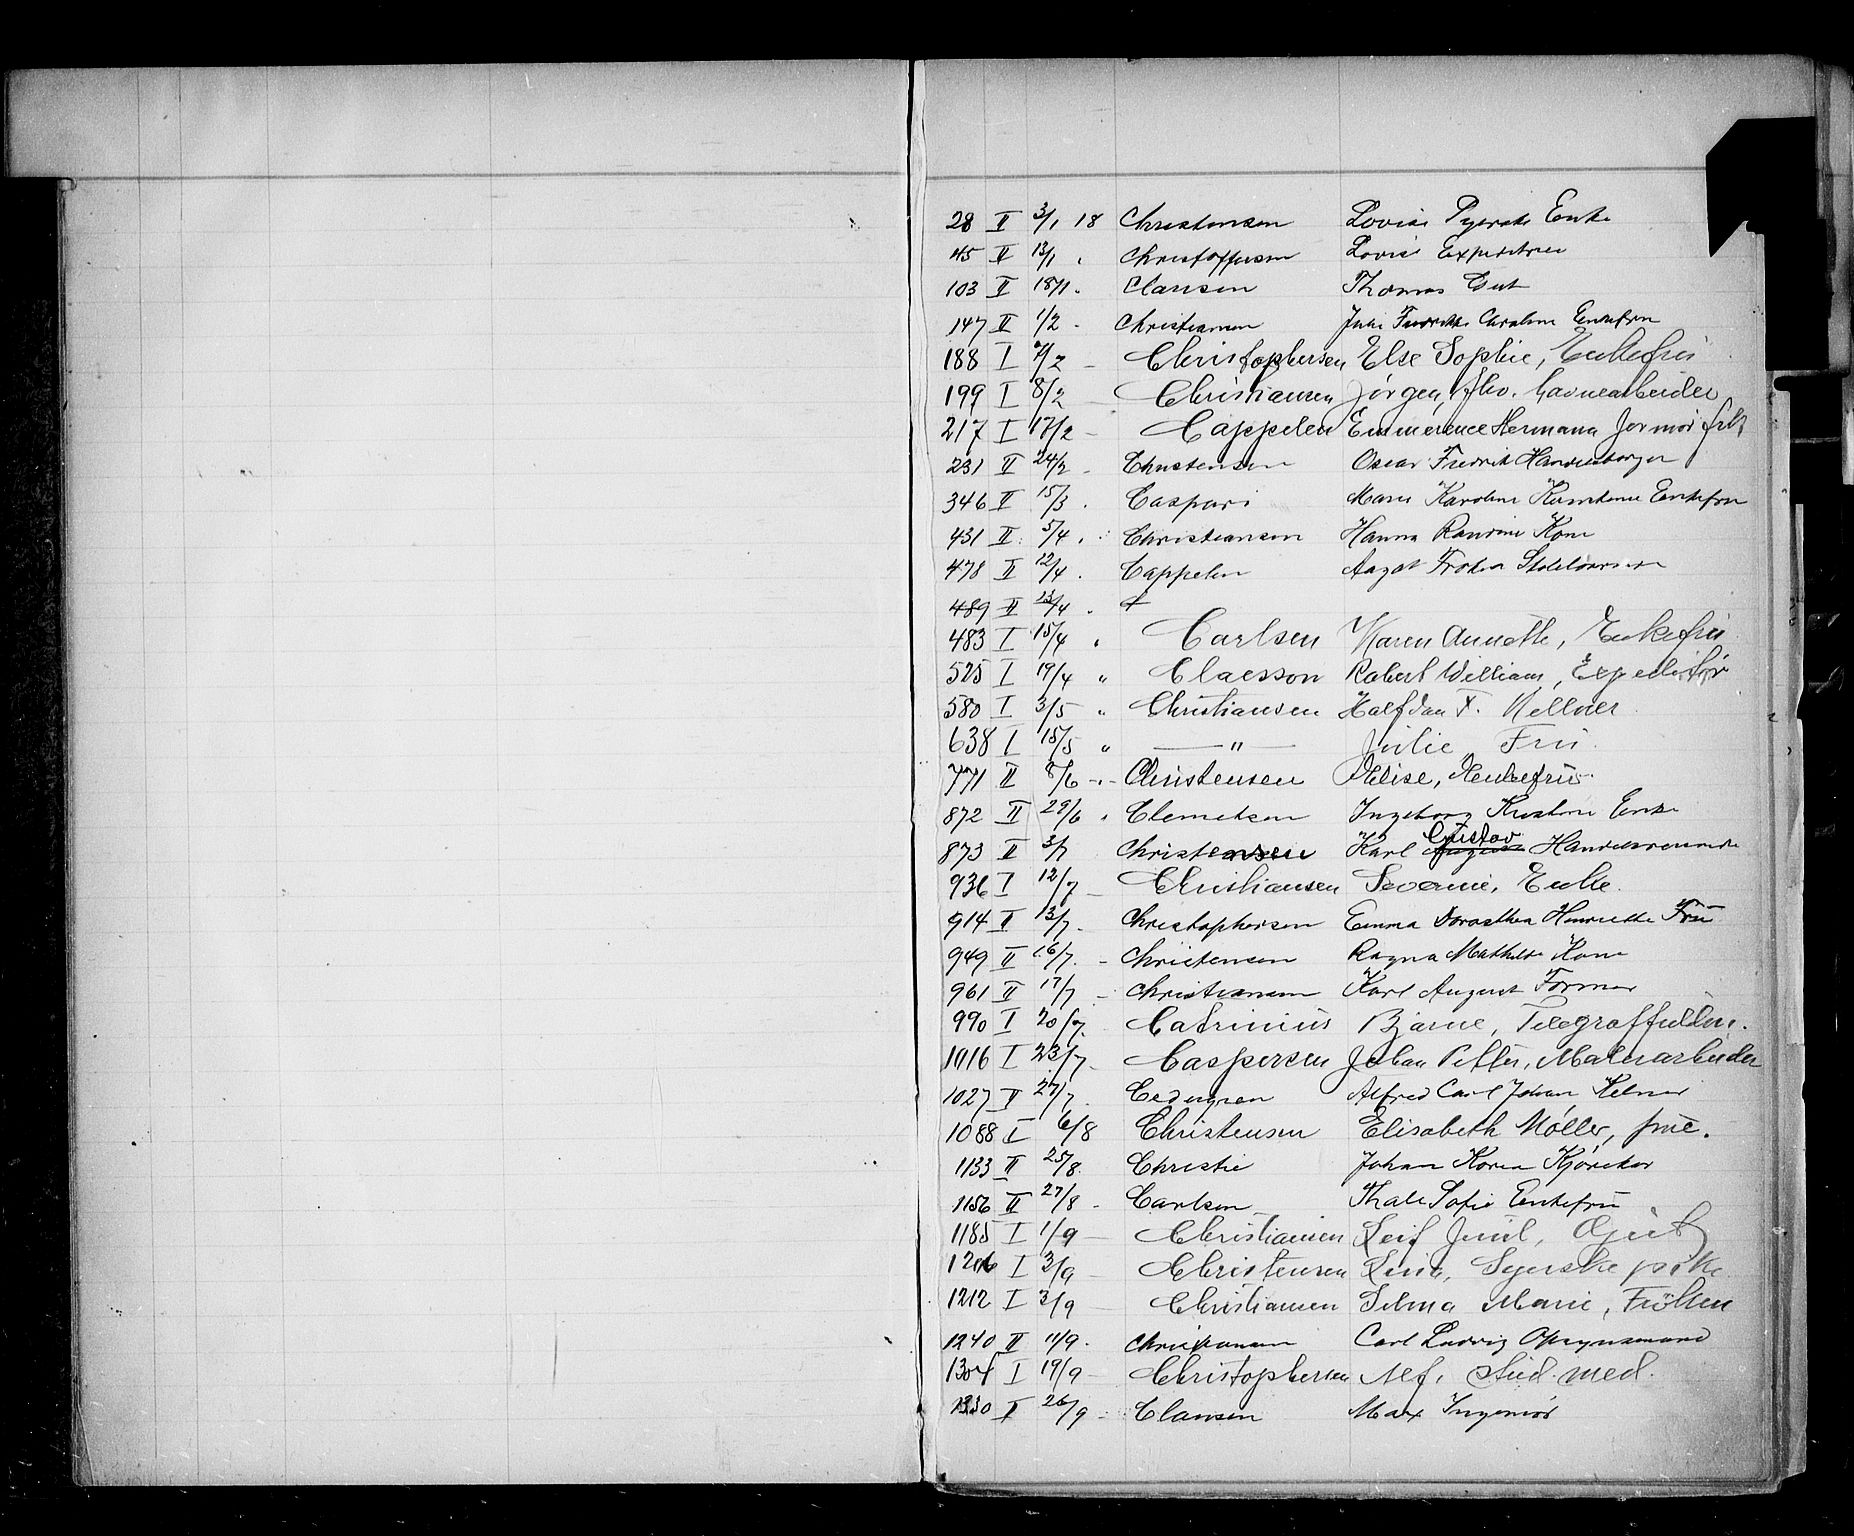 28 II 3/1 18 Christensen Lovise Enke
45 II 13/1 Christoffersen Lovise Expeditrice
103 II 18/1 Clausen Thomas Gut
147 II 1/2 - Christiansen Julie Fredrikke Caroline Enkefru
188 I 7/2 - Christophersen Else Sophie, Enkefru
199 I 8/2 - Christiansen Jørgen, fhv. havnearbeider
217 I 17/2 - Cappelen Emmerence Hermana Jormor frk
231 II 24/2 - Christensen Oscar Fredrik Handelsborger
346 II 15/3 . Caspari Karoline Enkefru
431 II 5/4 . Christiansen Hanna Randine Kone
478 II 12/4 . Cappelen Aagot Frøken
489 II 13/4 .
483 I 15/4 " Carlsen Karen Annette, Enkefru
525 I 19/4 " Claesson Robert William, Expeditør
580 I 3/5 " Christiansen Halfdan F. Kellner
638 I 15/5 " —"— Julie Fru.
771 II 8/6 - Christensen Elise, Enkefru.
872 II 29/6 " Clemetsen Ingeborg Kristine Enke
873 II 3/7 Christensen Karl Gustav Handelsreisende
936 I 12/7 - Christiansen Severine, Enke.
914 II 13/7 . Christophersen Emma Dorothea Henriette Fru
949 II 16/7 . - Christensen Ragna Mathilde Kone
961 II 17/7 - Christiansen Karl August Former
990 I 20/7. Catrinius Bjarne, Telegraffuldm.
1016 I 23/7 - Caspersen Johan Petter, Malerarbeider
1027 II 27/7 . Cedergren Alfred Carl Johan Kelner
1088 I 6/8 Christensen Elisabeth Møller, frue.
1133 II 25/8. Christie Johan Koren Kjørekar
1156 II 27/8 - Carlsen Thale Sofie Enkefru
1185 I 1/9 - Christiansen Leif Juul, Gut
1206 I 3/9 - Christensen Lina, Syerske
1212 I 3/9 - Christiansen Selma Marie, Frøken
1240 II 11/9. Christiansen Carl Ludvig Opsynsmand
1304 I 19/9 - Christophersen Alf, Stud. med.
1330 II 26/9 - Clausen Max Ingeniør